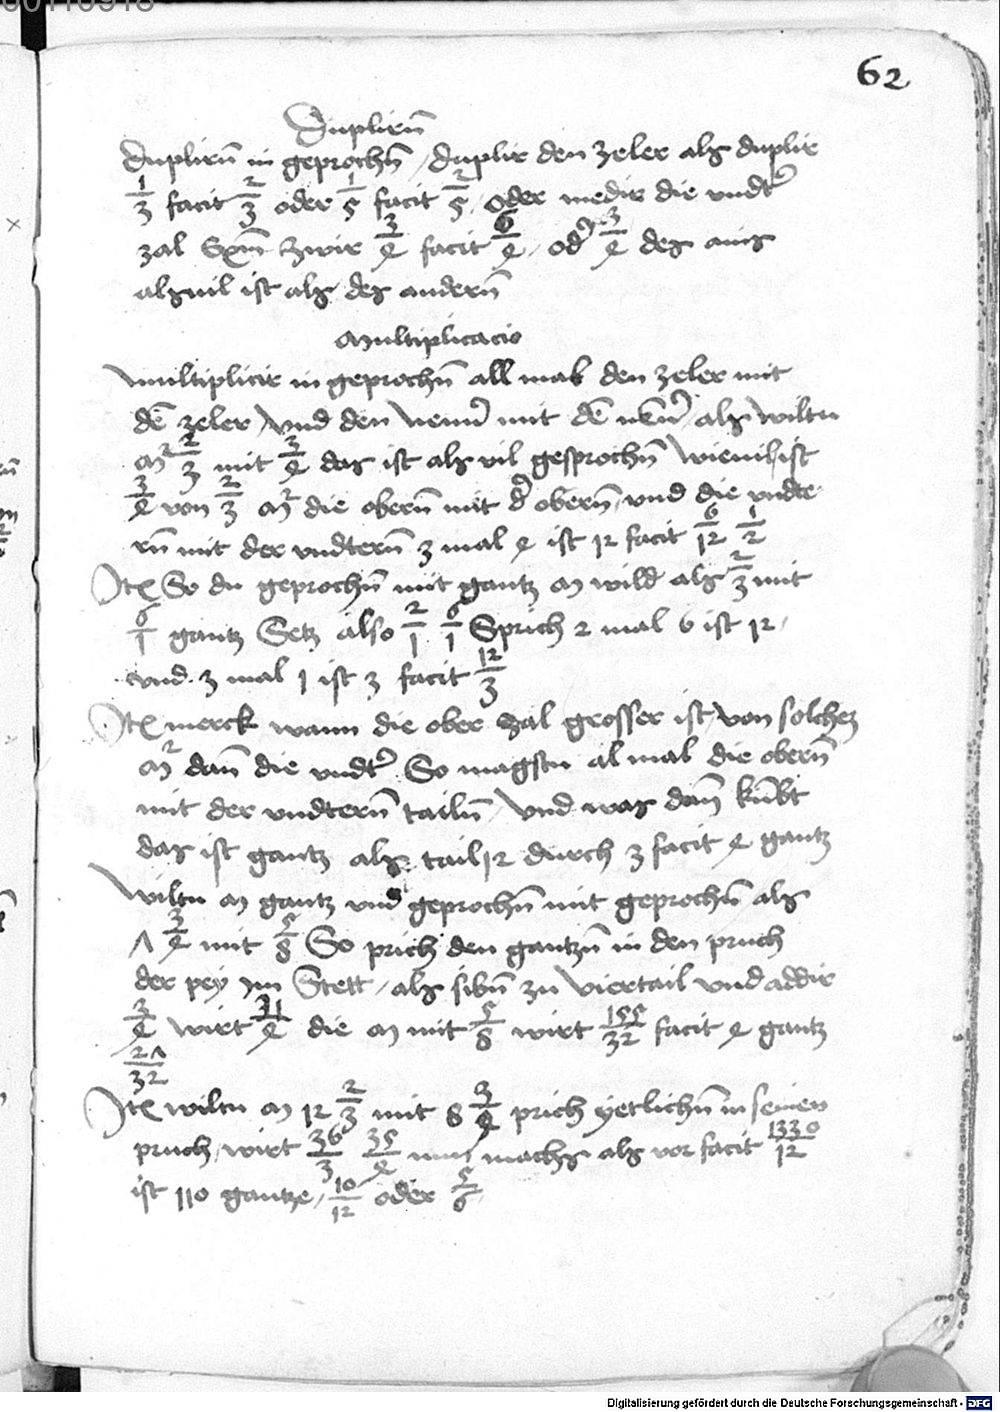 62
Duplirn̄
Duplirn̄ in geprochn̄ / duplir den zeler als duplir
1/3 facit 2/3 oder 1/5 facit 2/5 / oder medir die vndt'
zal Exm̄ zwir 3/4 facit 6/4 / od' 3/4 des ains
alsuil ist als des andern̄
Multiplicacio
Multiplicir in geprochn̄ all mal den zeler mit
dē zeler / Vnd den Nen̄' mit dē nēn' / als wiltu
m 2/3 mit 3/4 das ist als vil gesprochn̄ / wieuil ist
3/4 von 2/3 m die obern̄ mit d' obern̄ / vnd die vndte
rn̄ mit der vndtern̄ 3 mal 4 ist 12 facit 6/12 1/2
Itē So du geprochn̄ mit gantz m wild als 2/3 mit
6/1 gantz Setz also 2/1 6/1 Sprich 2 mal 6 ist 12 /
vnd 3 mal 1 ist 3 facit 12/3
Itē merck wann die ober zal grosser ist / von solchez
m dan̄ die vndt' So magstu al mal die obern̄
mit der vndtern̄ tailn̄ / Vnd was dan̄ kūbt
das ist gantz als tail 12 durch 3 facit 4 gantz
Wiltu m gantz vnd geprochn̄ mit geprochn̄ als
7 3/4 mit 5/8 So prich den gantzn̄ in den pruch
der pey im Stett / als sibn̄ zu viertail vnd addir
3/4 wirt 31/4 die m mit 5/8 wirt 155/32 facit 4 gantz
27/32
Itē wiltu m 12 2/3 mit 8 3/4 prich yetlichn̄ in seinen
pruch / wirt 36/3 35/4 nun machs als vor facit 1330/12
ist 110 gantze / 10/12 oder 5/6
Digitalisierung gefördert durch die Deutsche Forschungsgemeinschaft - DFG